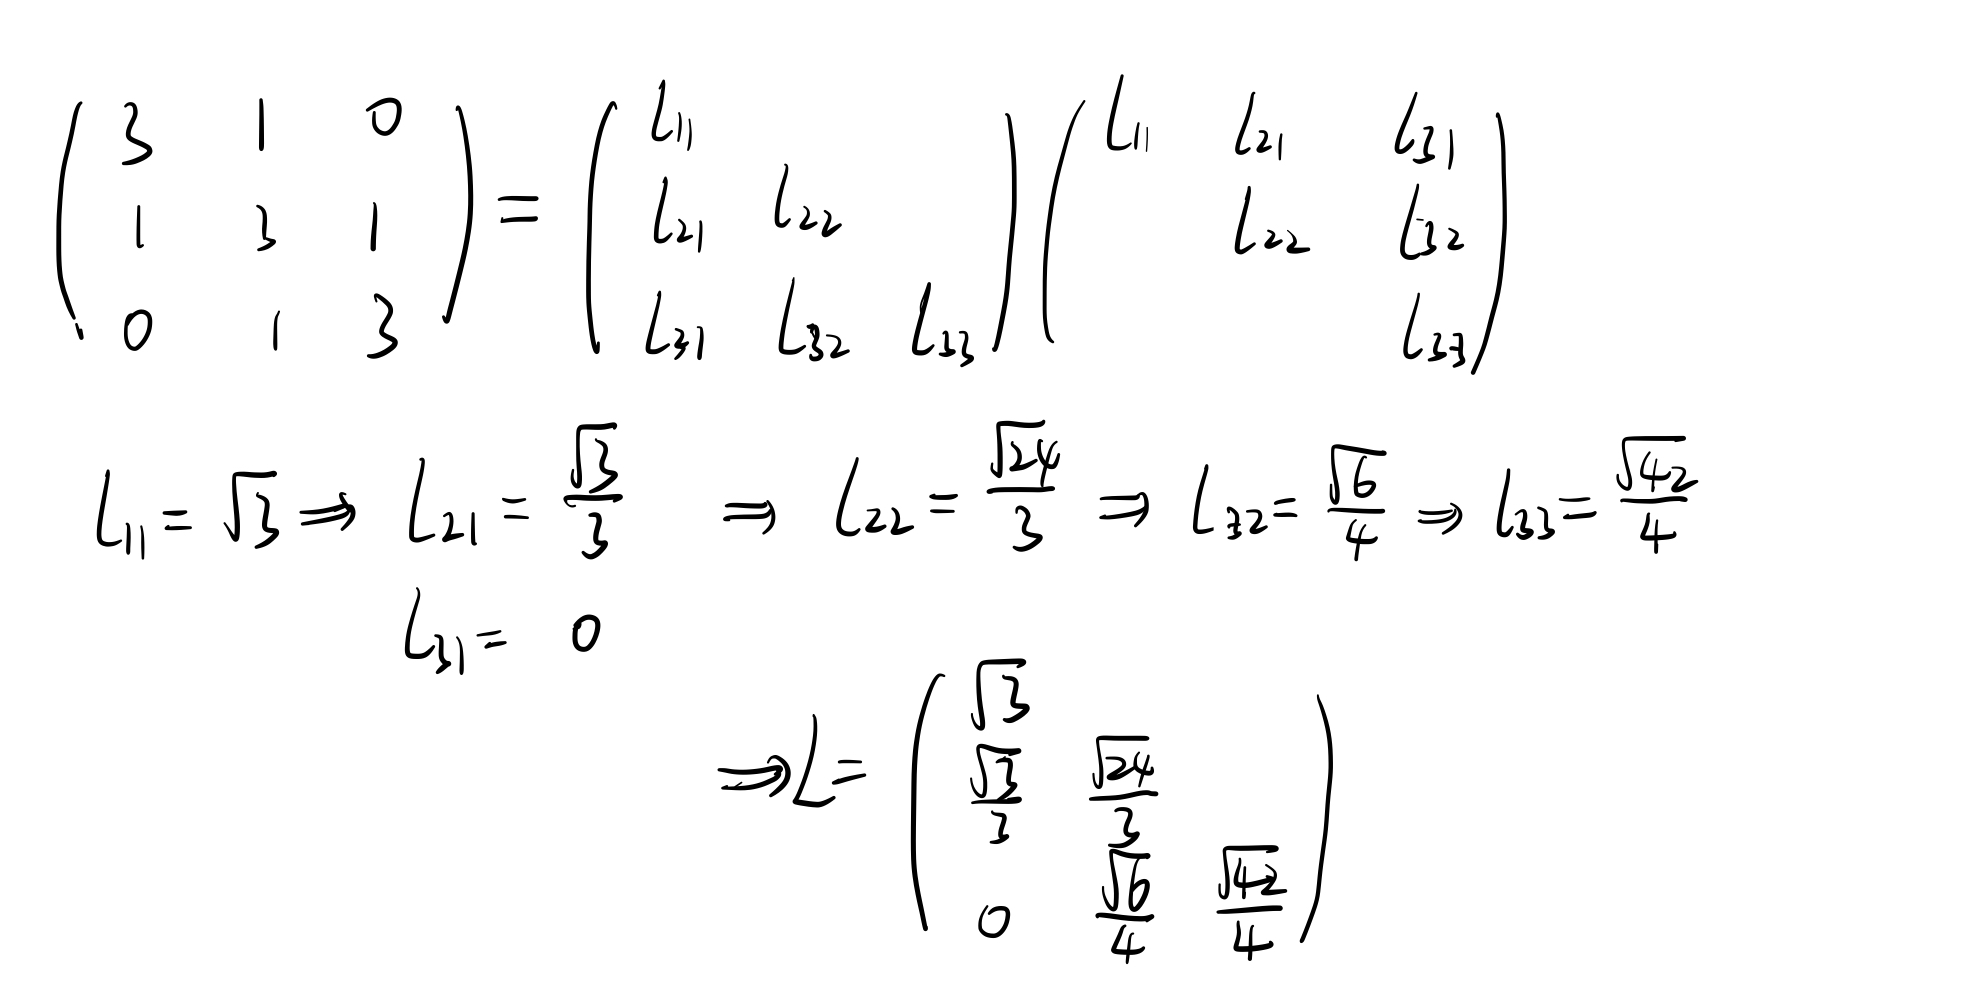 ( 3 1 0 ; 1 3 1 ; 0 1 3 ) = ( L₁₁ ; L₂₁ L₂₂ ; L₃₁ L₃₂ L₃₃ ) ( L₁₁ L₂₁ L₃₁ ; L₂₂ L₃₂ ; L₃₃ )
L₁₁ = √3 ⇒ L₂₁ = √3/3 ⇒ L₂₂ = √24/3 ⇒ L₃₂ = √6/4 ⇒ L₃₃ = √42/4
L₃₁ = 0
⇒ L = ( √3 ; √3/3 √24/3 ; 0 √6/4 √42/4 )